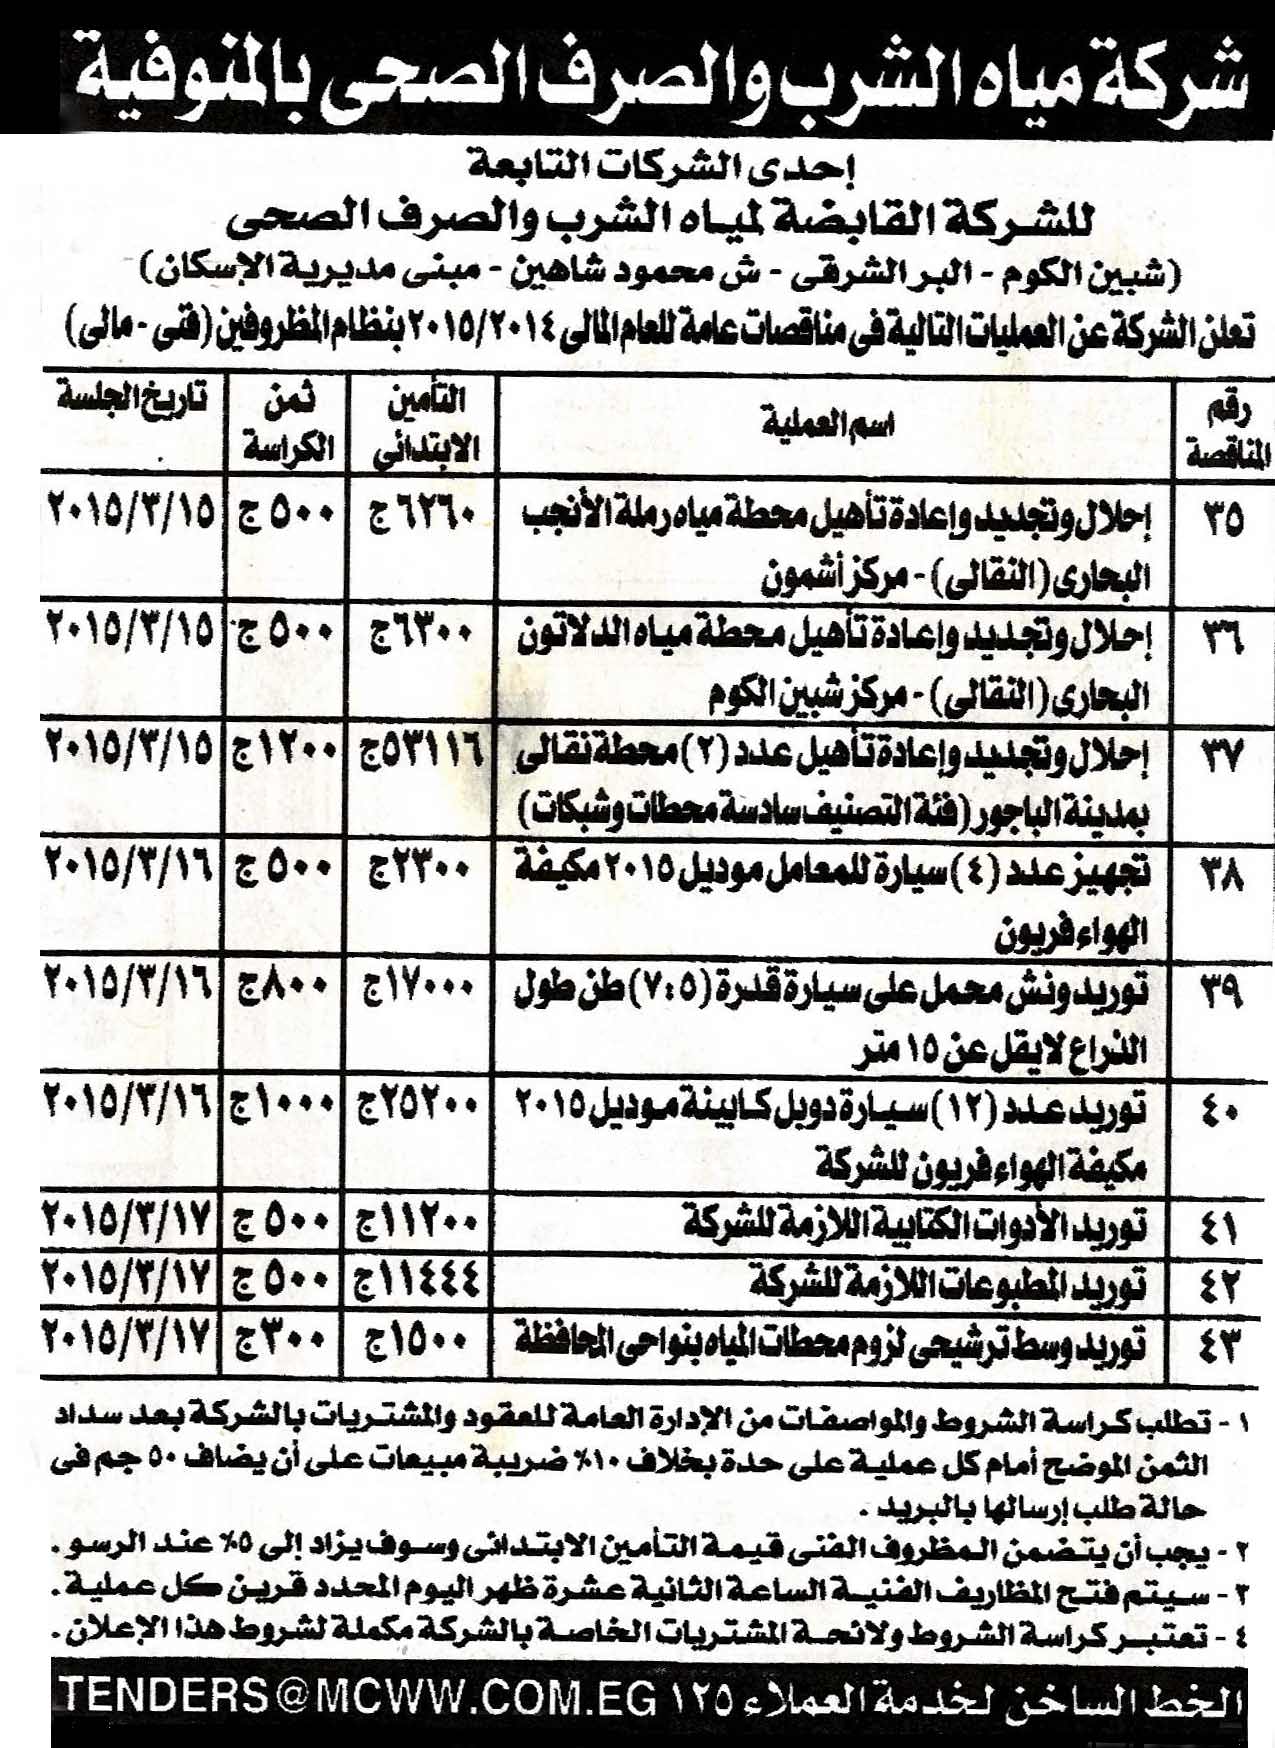 شركة مياه الشرب والصرف الصحى بالمنوفية
إحدى الشركات التابعة
للشركة القابضة لمياه الشرب والصرف الصحى
(شبين الكوم - البر الشرقى - ش محمود شاهين - مبنى مديرية الإسكان)
تعلن الشركة عن العمليات التالية فى مناقصات عامة للعام المالى ٢٠١٥/٢٠١٤ بنظام المظروفين (فنى - مالى)
رقم المناقصة | اسم العملية | التأمين الابتدائى | ثمن الكراسة | تاريخ الجلسة
٣٥ | إحلال وتجديد وإعادة تأهيل محطة مياه رملة الأنجب | ٦٢٦٠ ج | ٥٠٠ ج | ٢٠١٥/٣/١٥
البحارى (النقالى) - مركز أشمون
٣٦ | إحلال وتجديد وإعادة تأهيل محطة مياه الدلاتون | ٦٣٠٠ج | ٥٠٠ ج | ٢٠١٥/٣/١٥
البحارى (النقالى) - مركز شبين الكوم
٣٧ | إحلال وتجديد وإعادة تأهيل عدد (٢) محطة نقالى | ٥٣١١٦ج | ١٢٠٠ج | ٢٠١٥/٣/١٥
بمدينة الباجور (فئة التصنيف سادسة محطات وشبكات)
٣٨ | تجهيز عدد (٤) سيارة للمعامل موديل ٢٠١٥ مكيفة | ٢٣٠٠ج | ٥٠٠ ج | ٢٠١٥/٣/١٦
الهواء فريون
٣٩ | توريد ونش محمل على سيارة قدرة (٧:٥) طن طول | ١٧٠٠٠ج | ٨٠٠ج | ٢٠١٥/٣/١٦
الذراع لايقل عن ١٥ متر
٤٠ | توريد عدد (١٢) سيارة دوبل كابينة موديل ٢٠١٥ | ٢٥٢٠٠ج | ١٠٠٠ج | ٢٠١٥/٣/١٦
مكيفة الهواء فريون للشركة
٤١ | توريد الأدوات الكتابية اللازمة للشركة | ١١٢٠٠ج | ٥٠٠ ج | ٢٠١٥/٣/١٧
٤٢ | توريد المطبوعات اللازمة للشركة | ١١٤٤٤ج | ٥٠٠ ج | ٢٠١٥/٣/١٧
٤٣ | توريد وسط ترشيحى لزوم محطات المياه بنواحى المحافظة | ١٥٠٠ج | ٣٠٠ج | ٢٠١٥/٣/١٧
١ - تطلب كراسة الشروط والمواصفات من الإدارة العامة للعقود والمشتريات بالشركة بعد سداد
الثمن الموضح أمام كل عملية على حدة بخلاف ١٠٪ ضريبة مبيعات على أن يضاف ٥٠ جم فى
حالة طلب إرسالها بالبريد .
٢ - يجب أن يتضمن المظروف الفنى قيمة التأمين الابتدائى وسوف يزاد إلى ٥٪ عند الرسو .
٣ - سيتم فتح المظاريف الفنية الساعة الثانية عشرة ظهر اليوم المحدد قرين كل عملية .
٤ - تعتبر كراسة الشروط ولائحة المشتريات الخاصة بالشركة مكملة لشروط هذا الإعلان .
الخط الساخن لخدمة العملاء ١٢٥ TENDERS@MCWW.COM.EG